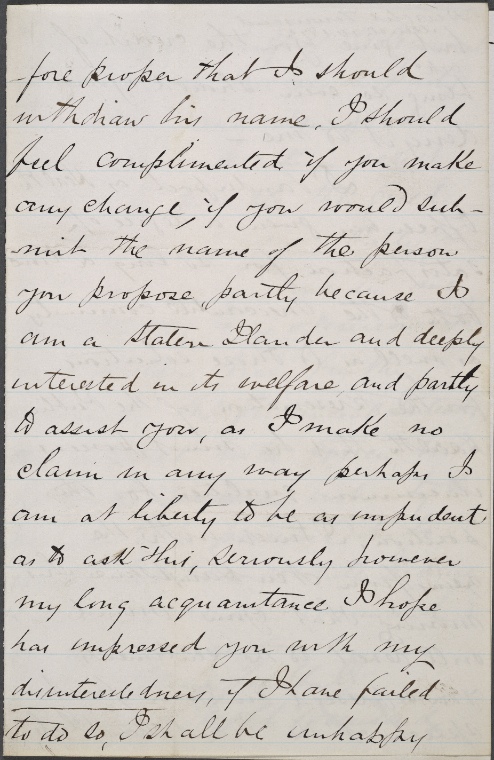 -fore proper that I should
withdraw his name. I should
feel complimented if you make
any change, if you would sub-
-mit the name of the person
you propose, partly because I
am a Staten Ilander and deeply
interested in its welfare and partly
to assist you, as I make no
claim in any way perhaps I
am at liberty to be as impudent
as to ask this, seriously however
my long acquaintance I hope
has impressed you with my
disinterestedness, if I have failed
to do so, I shall be unhappy